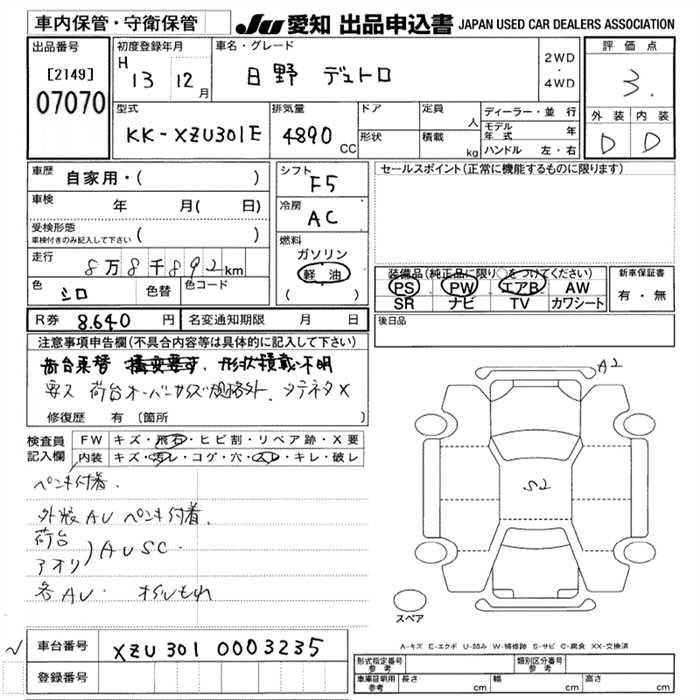 車内保管・守衛保管
JU 愛知 出品申込書 JAPAN USED CAR DEALERS ASSOCIATION
出品番号
[2149]
07070
初度登録年月
H 13 12月
車名・グレード
日野 デュトロ
2WD
・
4WD
評価点
3.
外装 内装
D D
型式
KK-XZU301E
排気量
4890 CC
ドア
形状
定員 人
積載 kg
ディーラー・並行
モデル年式 年
ハンドル 左・右
車歴
自家用・( )
車検
年 月( 日)
受検形態
車検付きのみ記入して下さい ( )
走行
8万8千892km
色
シロ
色替
色コード
シフト
F5
冷房
AC
燃料
ガソリン
軽油
( )
セールスポイント(正常に機能するものに限ります)
装備品(純正品に限り○をつけてください)
PS PW エアB AW
SR ナビ TV カワシート
新車保証書
有・無
R券 8.640円
名変通知期限 月 日
後日品
注意事項申告欄(不具合内容等は具体的に記入して下さい)
荷台架替 形状積載不明
要ス 荷台オーバーサイズ規格外、タテネタX
修復歴 有 〔箇所 〕
検査員記入欄
FW キズ・飛石・ヒビ割・リペア跡・X要
内装 キズ・汚レ・コゲ・穴・スレ・キレ・破レ
ペンキ付着.
外板AU ペンキ付着.
荷台
アオリ ) AUSC.
各AU. オイルもれ
A2
S2
スペア
A-キズ E-エクボ U-凹み W-補修跡 S-サビ C-腐食 XX-交換済
車台番号 XZU301 0003235
登録番号
形式指定番号 参考
類別区分番号 参考
車庫証明用 参考
長さ cm 幅 cm 高さ cm